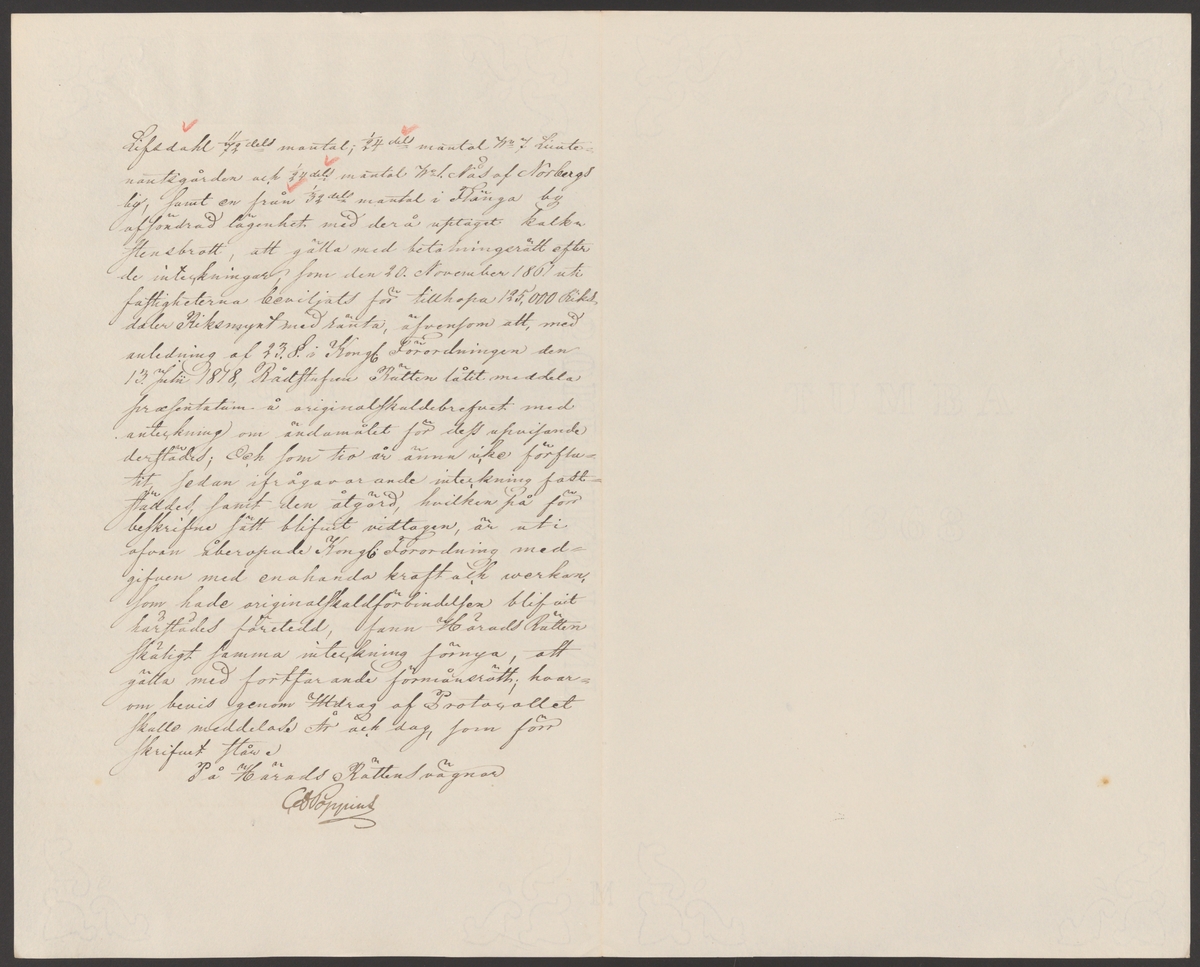 Lifsdahl 11/72 dels mantal; 1/24 dels mantal No 7 Lieute-
nantsgården och 1/24 dels mantal No 1. Nås af Norbergs
by, samt en från 1/32 dels mantal i Klänga by
afsöndrad lägenhet med derå uptaget kalk-
stensbrott, att gälla med betalningsrätt efter
de inteckningar, som den 20. November 1861 uti
fastigheterna beviljats för tillhopa 125,000 Riks-
daler Riksmynt med ränta, äfvensom att, med
anledning af 23. §. i Kongl. Förordningen den
13. Juli 1818, Rådstufvu Rätten låtit meddela
præsentatum å originalskuldebrefvet med
anteckning om ändamålet för dess upvisande
derstädes; Och som tio år ännu icke förflu-
tit, sedan ifrågavarande inteckning fast-
ställdes, samt den åtgärd, hvilken på för
beskrifne sätt blifvit vidtagen, är uti
ofvan åberopade Kongl. Förordning med-
gifven med enahanda kraft och werkan,
som hade originalskuldförbindelsen blifvit
härstädes företedd, fann Härads Rätten
skäligt samma inteckning förnya, att
gälla med fortfarande förmånsrätt; hvar-
om bevis genom Utdrag af Protocollet
skulle meddelas År och dag, som förr
skrifvet står
På Härads Rättens vägnar
CD Poppius